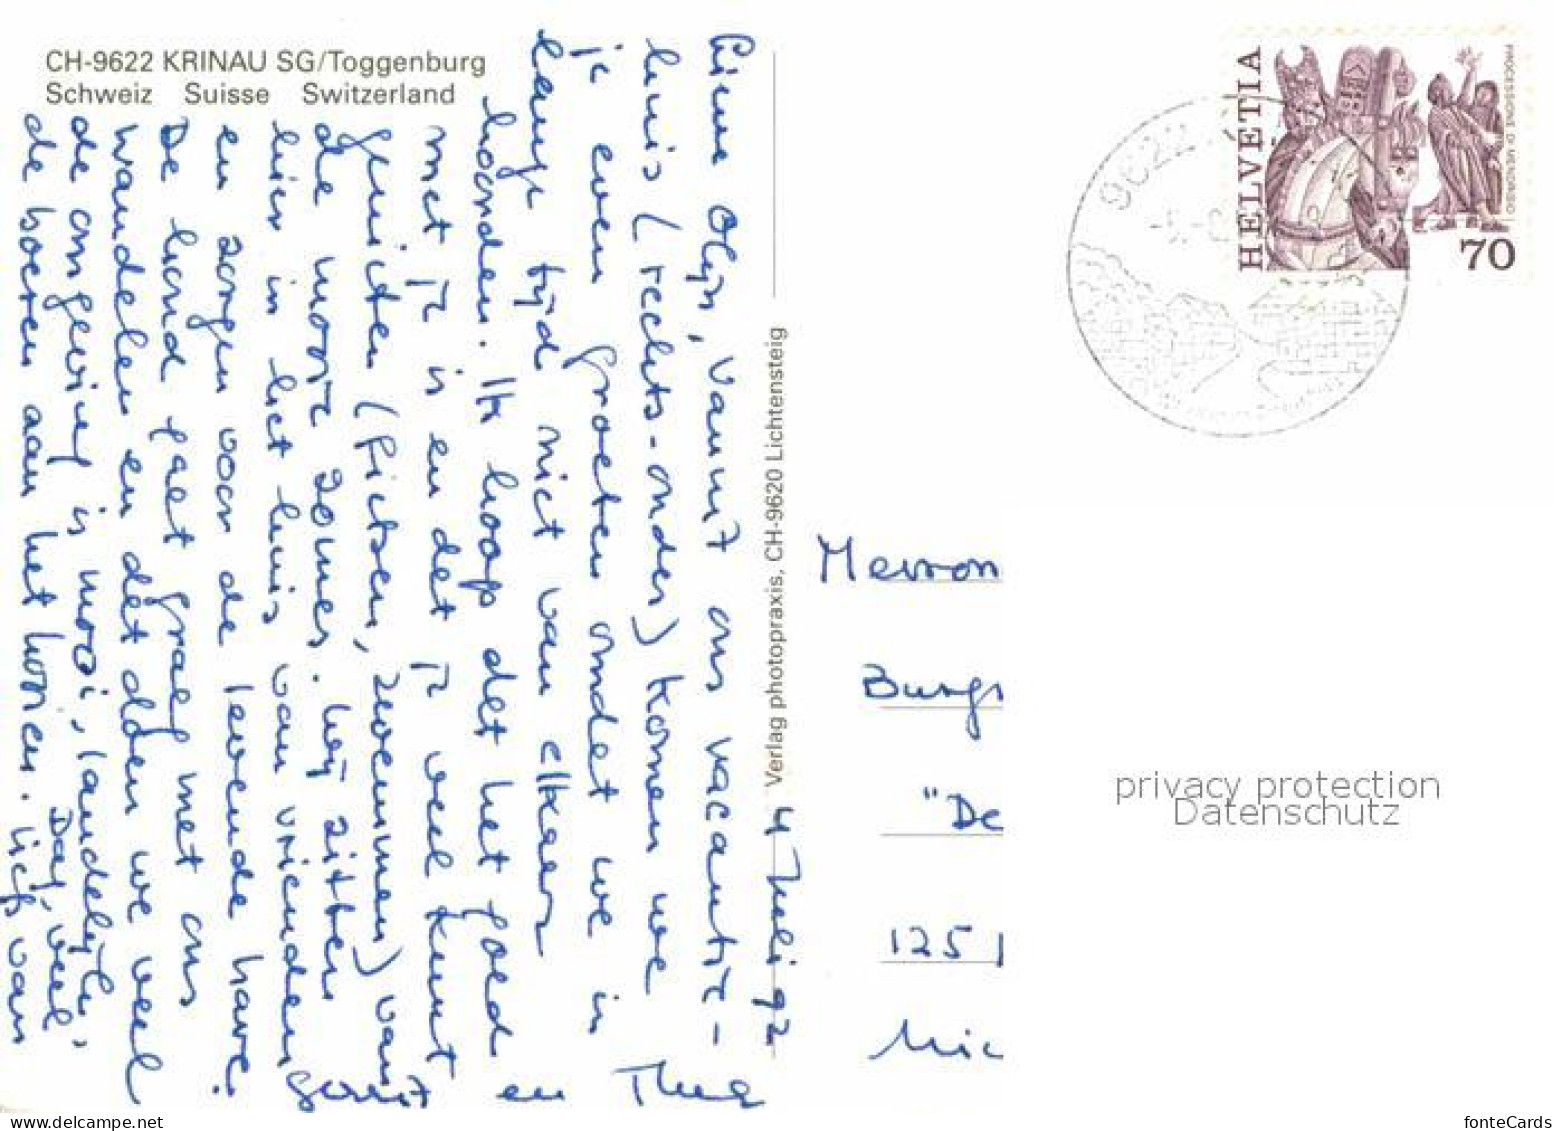 CH-9622 KRINAU SG/Toggenburg
Schweiz Suisse Switzerland
4 Juli 92
vanuit ons vacantie-
huis (rechts-onder) komen we
je even groeten omdat we in
lange tijd niet van elkaar
hoorden. Ik hoop dat het goed
met je is en dat je veel kunt
genieten (fietsen, zwemmen) van
de mooie zomer. Wij zitten
hier in het huis van vrienden
en zorgen voor de levende have.
De hond gaat graag met ons
wandelen en dat doen we veel
de omgeving is mooi, landelijk,
de boeren aan het hooien. Dag, veel
liefs van
Gerrit en Thea
Verlag photopraxis, CH-9620 Lichtensteig
HELVÉTIA
PROCESSIONE DI MENDRISIO
70
9622
Mevron
Burgs
"De
125
privacy protection
Datenschutz
www.delcampe.net
fonteCards